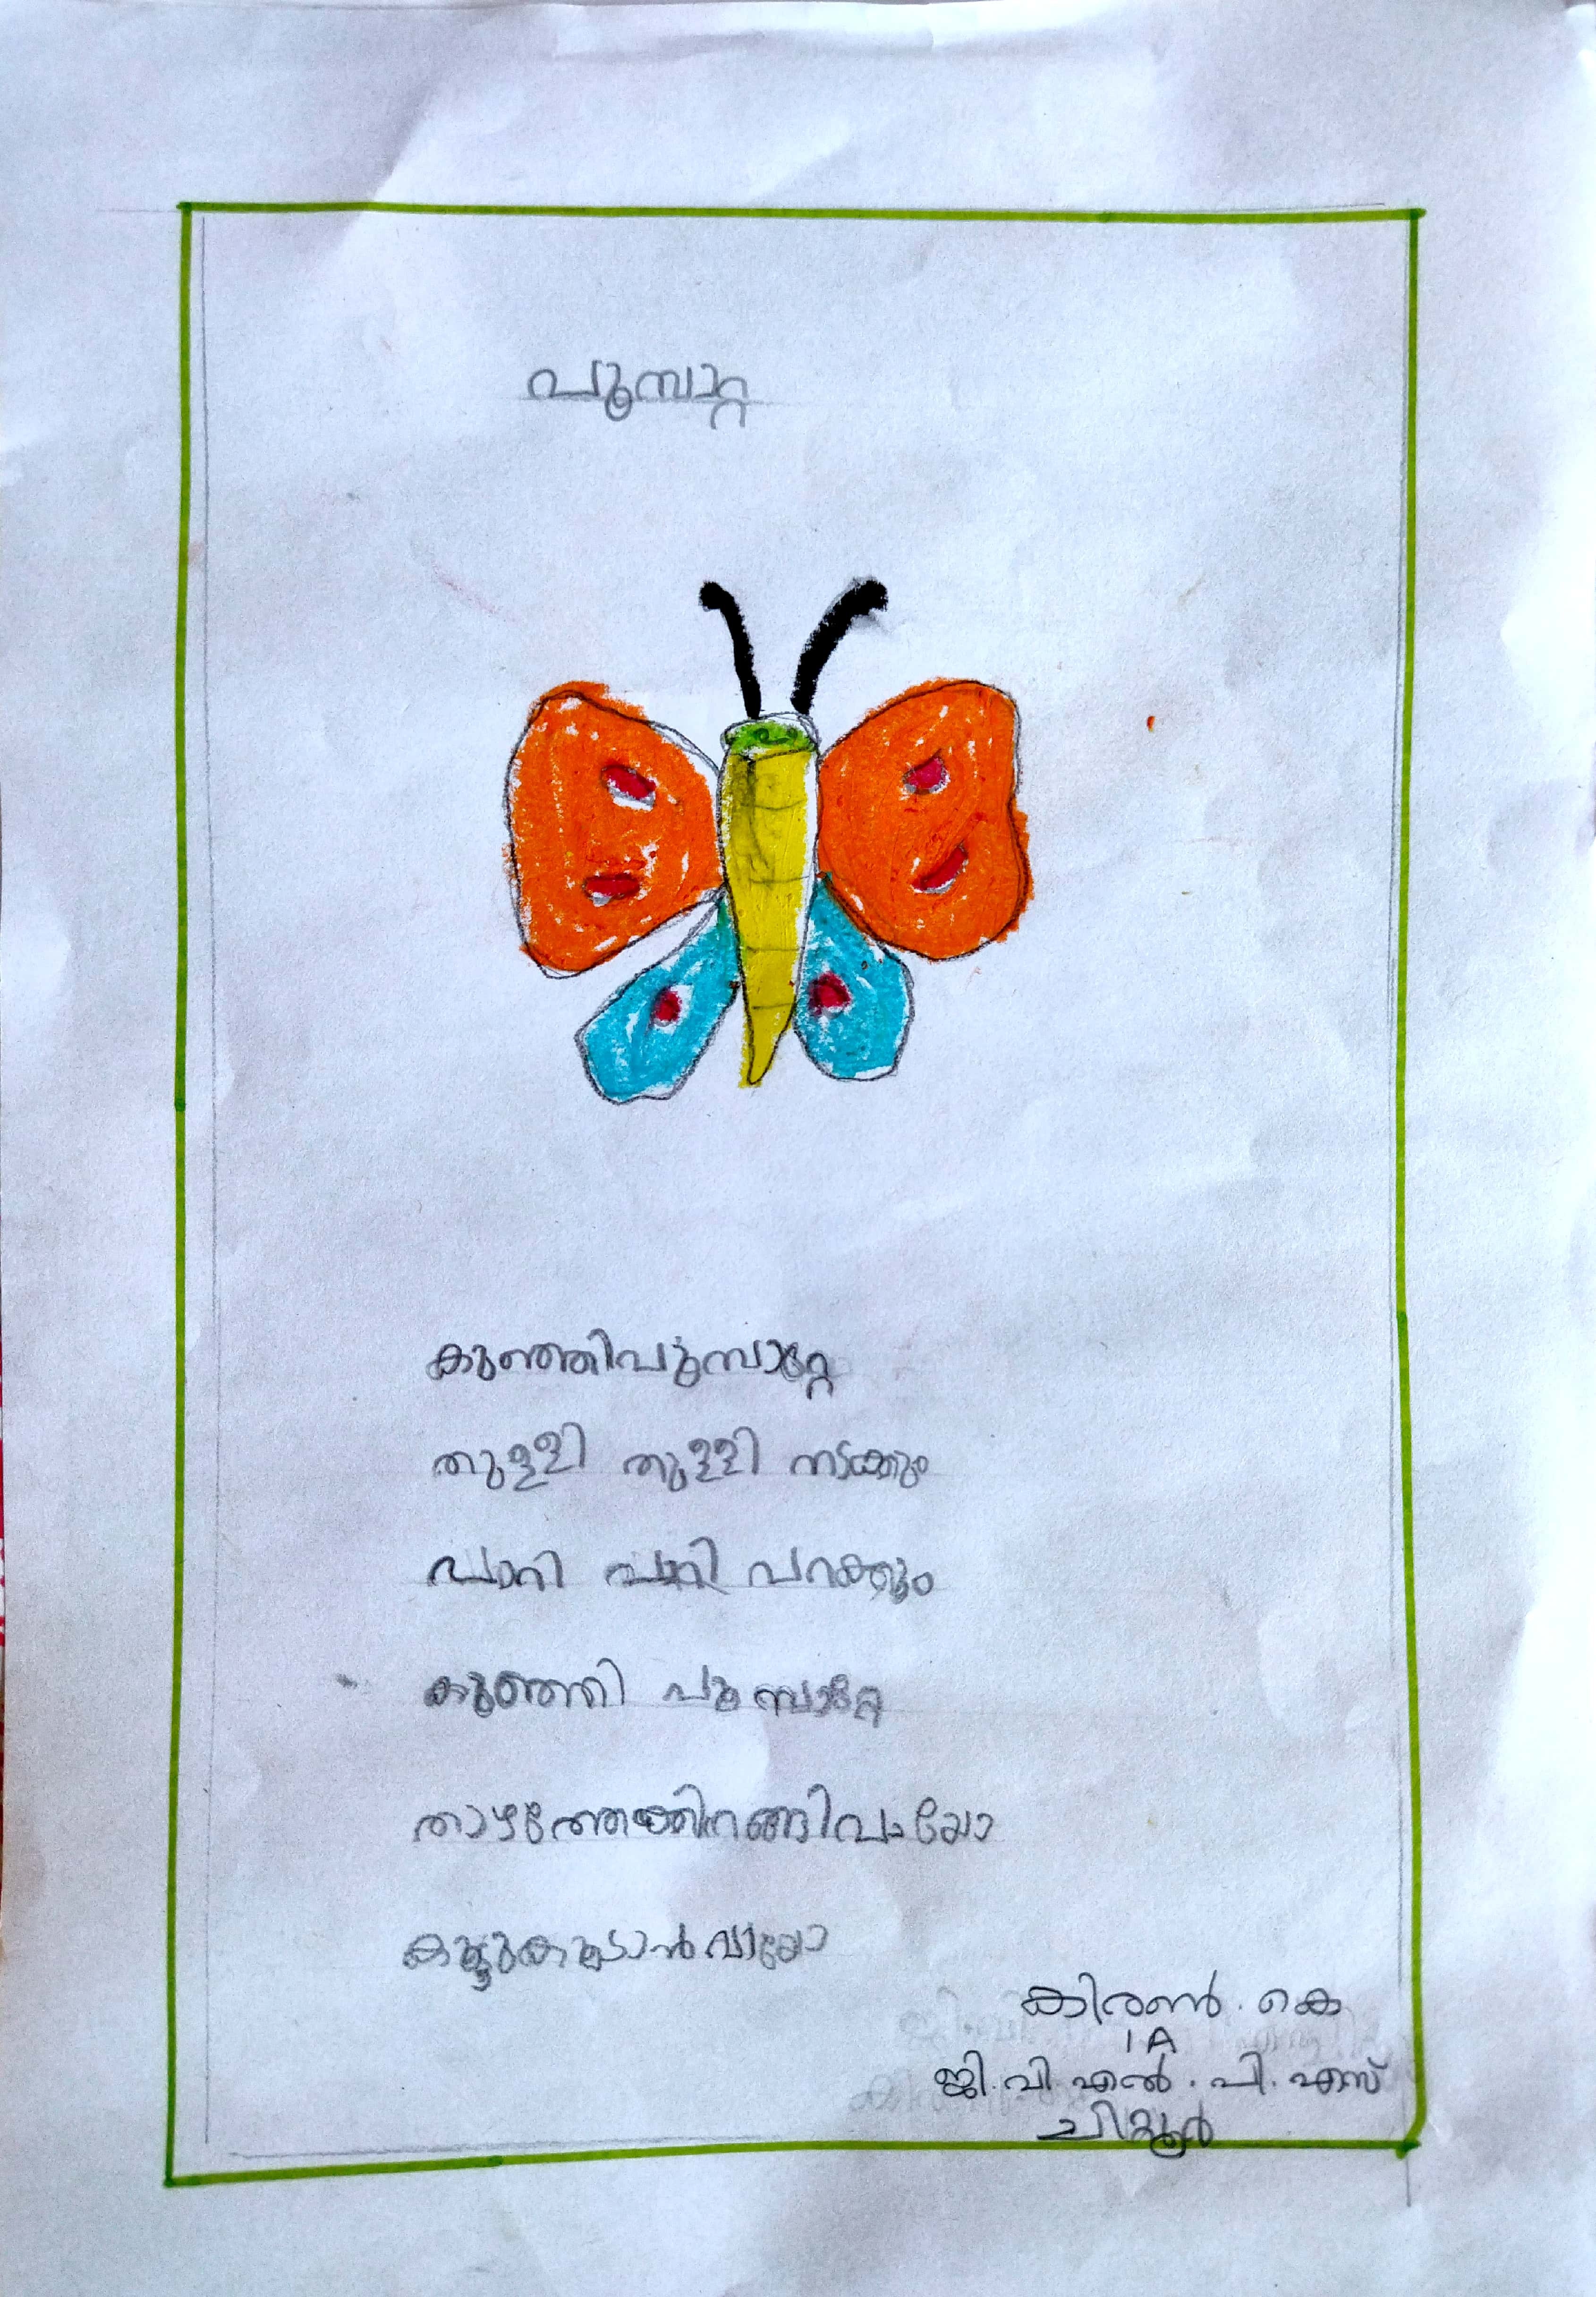 പൂമ്പാറ്റ
കുഞ്ഞിപൂമ്പാറ്റേ
തുള്ളി തുള്ളി നടക്കും
പാറി പാറി പറക്കും
കുഞ്ഞി പൂമ്പാറ്റേ
താഴത്തേക്കിറങ്ങിവായോ
കൂട്ടുകൂടാൻവായോ
കിരൺ. കെ
1 A
ജി. വി. എൽ. പി. എസ്
ചിറ്റൂർ